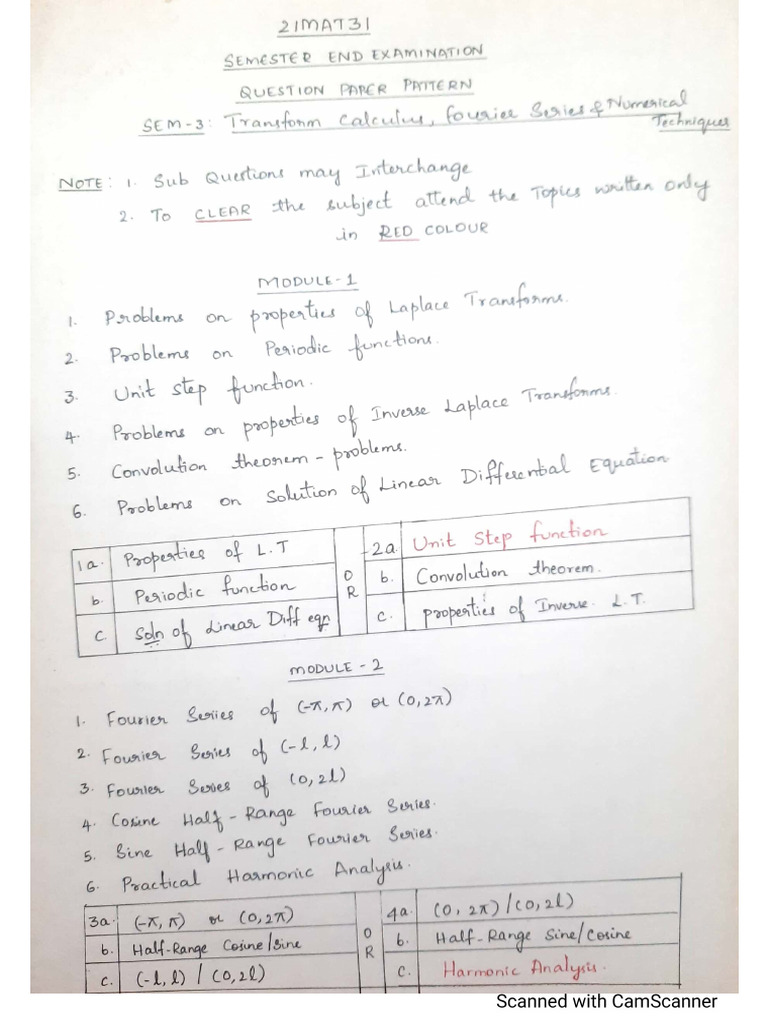 21MAT31
SEMESTER END EXAMINATION
QUESTION PAPER PATTERN
SEM-3: Transform Calculus, Fourier Series & Numerical Techniques
NOTE: 1. Sub Questions may Interchange
2. To CLEAR the subject attend the Topics written only
in RED COLOUR
MODULE-1
1. Problems on properties of Laplace Transforms.
2. Problems on Periodic functions.
3. Unit step function.
4. Problems on properties of Inverse Laplace Transforms.
5. Convolution theorem - problems.
6. Problems on Solution of Linear Differential Equation
1a. Properties of L.T OR 2a. Unit Step function
b. Periodic function b. Convolution theorem.
c. Soln of Linear Diff eqn c. properties of Inverse L.T.
MODULE - 2
1. Fourier Series of (-π,π) or (0,2π)
2. Fourier Series of (-l,l)
3. Fourier Series of (0,2l)
4. Cosine Half-Range Fourier Series.
5. Sine Half-Range Fourier Series.
6. Practical Harmonic Analysis.
3a. (-π,π) or (0,2π) OR 4a. (0,2π)/(0,2l)
b. Half-Range Cosine/Sine b. Half-Range Sine/Cosine
c. (-l,l) / (0,2l) c. Harmonic Analysis.
Scanned with CamScanner